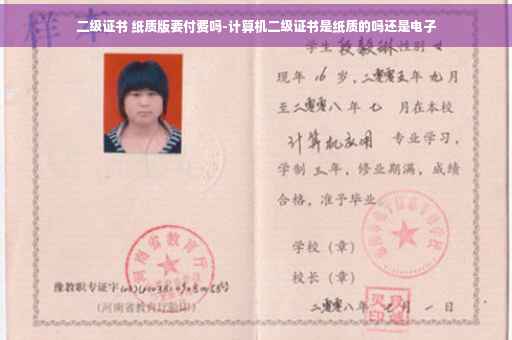 二级证书 纸质版要付费吗-计算机二级证书是纸质的吗还是电子
样本
学生 段毅琳 性别 女
现年 16 岁,二零零五年 九月
至二零零八年 七 月在本校
计算机应用 专业学习,
学制 三年,修业期满,成绩
合格,准予毕业
学校(章)
校长(章)
二零零八年 月 一 日
河南省教育厅
豫教职专证字
(河南省教育厅验印)